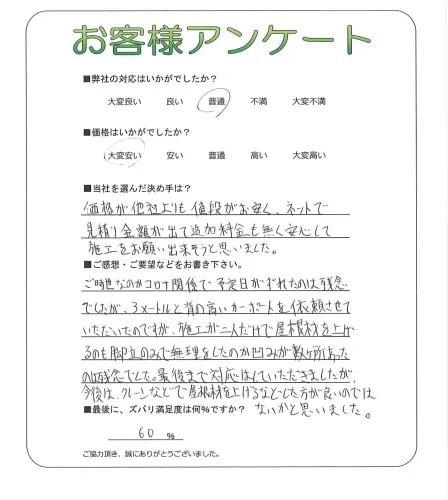 お客様アンケート
■弊社の対応はいかがでしたか？
大変良い 良い 普通 不満 大変不満
■価格はいかがでしたか？
大変安い 安い 普通 高い 大変高い
■当社を選んだ決め手は？
価格が他社よりも値段がお安く、ネットで
見積り金額が出て追加料金も無く安心して
施工をお願い出来そうと思いました。
■ご感想・ご要望などをお書き下さい。
ご時世なのかコロナ関係で予定日がずれたのは残念
でしたが、3メートルと背の高いカーポートを依頼させて
いただいたのですが、施工が二人だけで屋根材を上げ
るのも脚立のみで無理をしたのか凹みが数ヶ所あった
のは残念でした。最後まで対応はしていただきましたが、
今後は、クレーンなどで屋根材を上げるなどした方が良いのでは
ないかと思いました。
■最後に、ズバリ満足度は何％ですか？
60 ％
ご協力頂き、誠にありがとうございました。